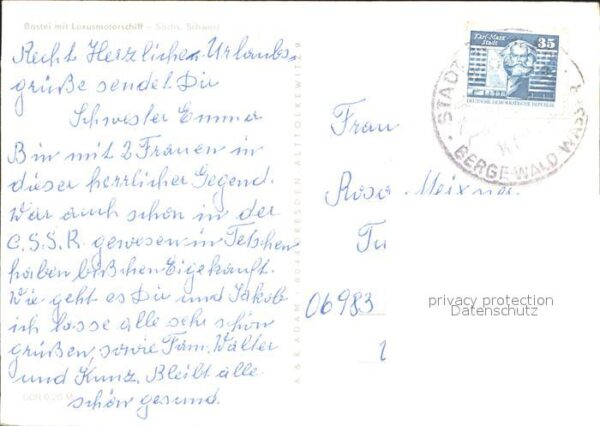 Bastei mit Luxusmotorschiff - Sächs. Schweiz
Recht Herzlichen Urlaubs-
grüße sendet Dir
Schwester Emma
Bin mit 2 Frauen in
dieser herrlicher Gegend.
War auch schon in der
C.S.S.R. gewesen in Tetschen
haben bißchen Eigekauft.
Wie geht es Dir und Jakob
ich lasse alle sehr schön
grüßen, sowie Fam. Walter
und Kunz. Bleibt alle
schön gesund.
DDR 0,20 M
A & R ADAM · 8046 DRESDEN ALTTOLKEWITZ 9
Karl-Marx-
Stadt
35
DEUTSCHE DEMOKRATISCHE REPUBLIK
STADT
BERGE · WALD WASSER
Frau
Rosa Meixner
06983
1
privacy protection
Datenschutz